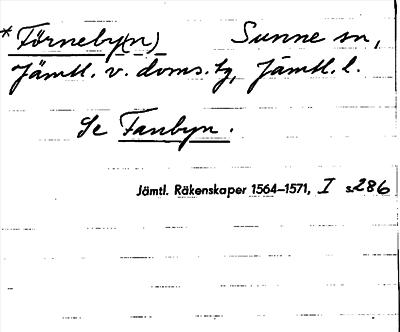 * Förneby(n) Sunne sn,
Jämtl. v. doms. tg, Jämtl. l.
Se Fanbyn.
Jämtl. Räkenskaper 1564–1571, I s. 286